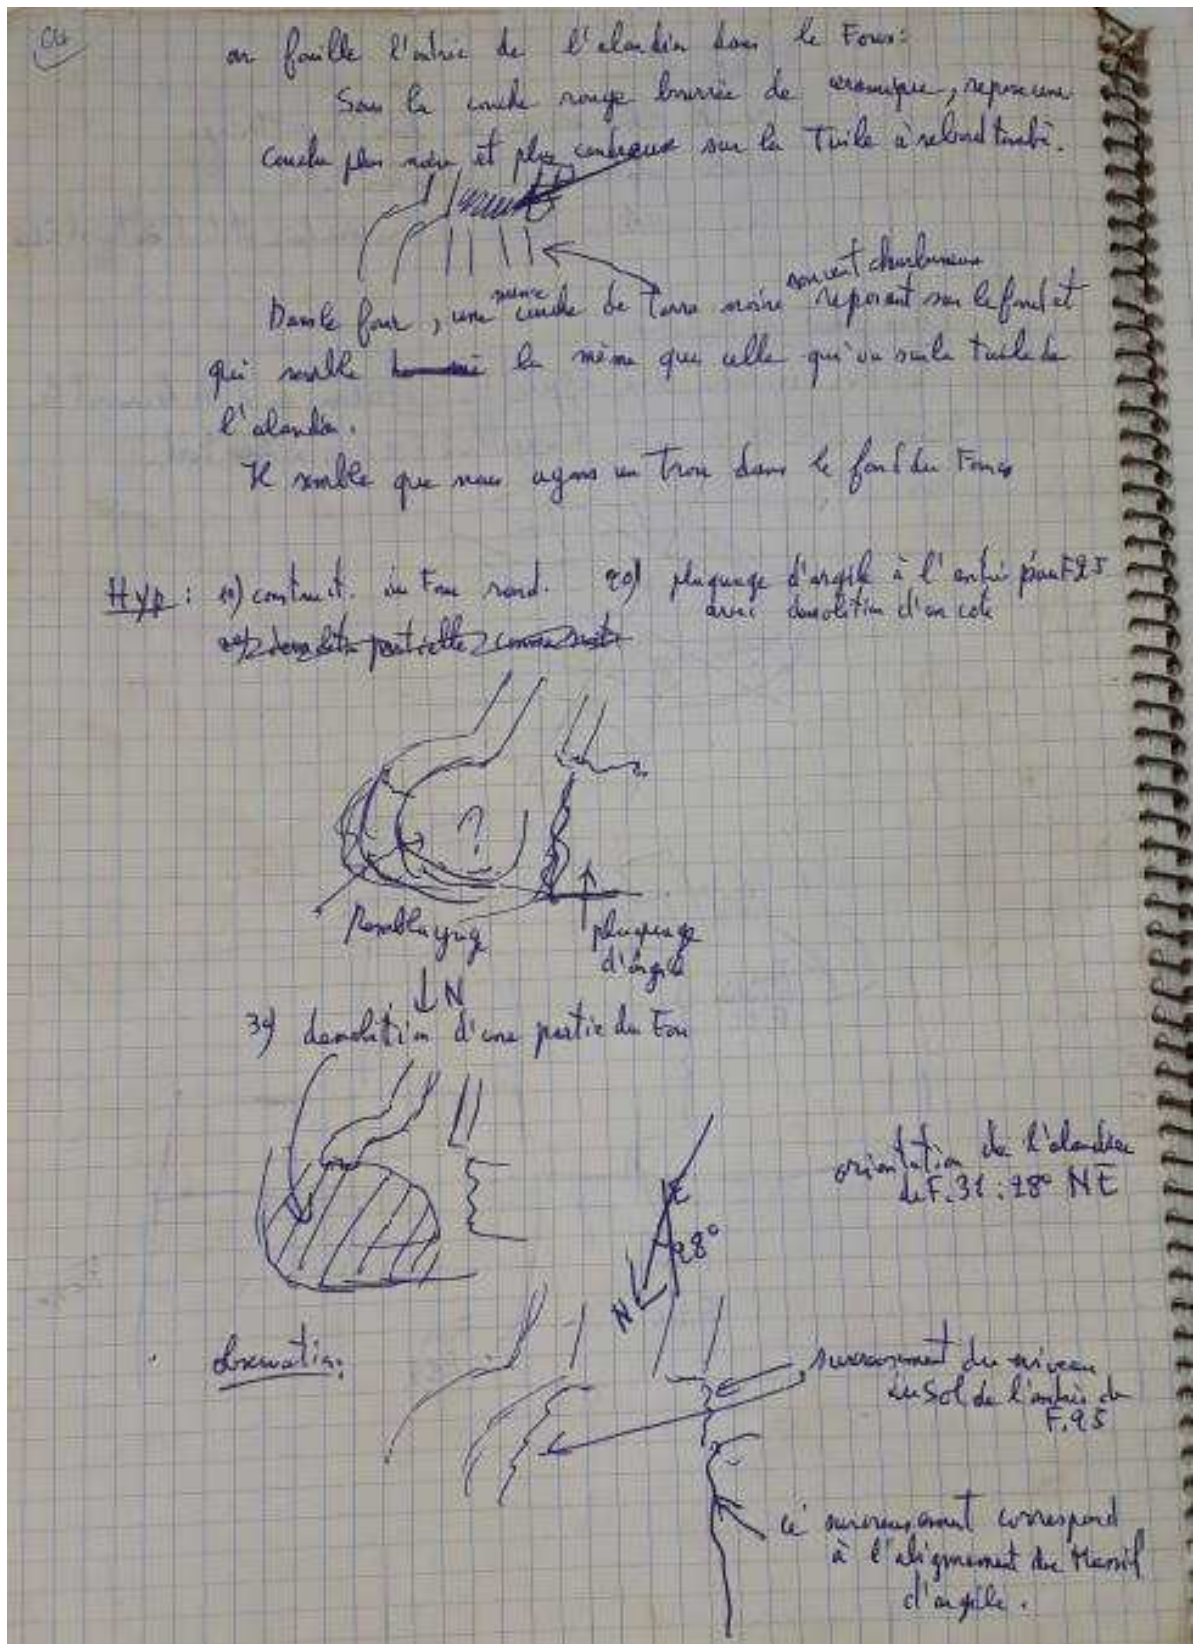 on fouille l'entrée de l'alandier dans le Four:
Sous la couche rouge bourrée de céramique, repose une
couche plus noire et plus cendreuse sur la Tuile à rebord tombé.
souvent charbonneux
mince
Dans le four, une couche de terre noire reposant sur le fond et
qui semble la même que celle qu'on sur la tuile de
l'alandier.
Il semble que nous ayons un trou dans le fond du Four
Hyp: 1o) construct. du Four rond. 2o) plaquage d'argile à l'entrée pour F25
avec demolition d'un coté
2o) demolition partielle
?
Remblayage
plaquage
d'argile
N
3o) demolition d'une partie du Four
orientation de l'alandier
de F.31: 28° NE
28°
N
observation:
surcreusement du niveau
du Sol de l'entrée du
F.25
ce surcreusement correspond
à l'alignement du Massif
d'argile.